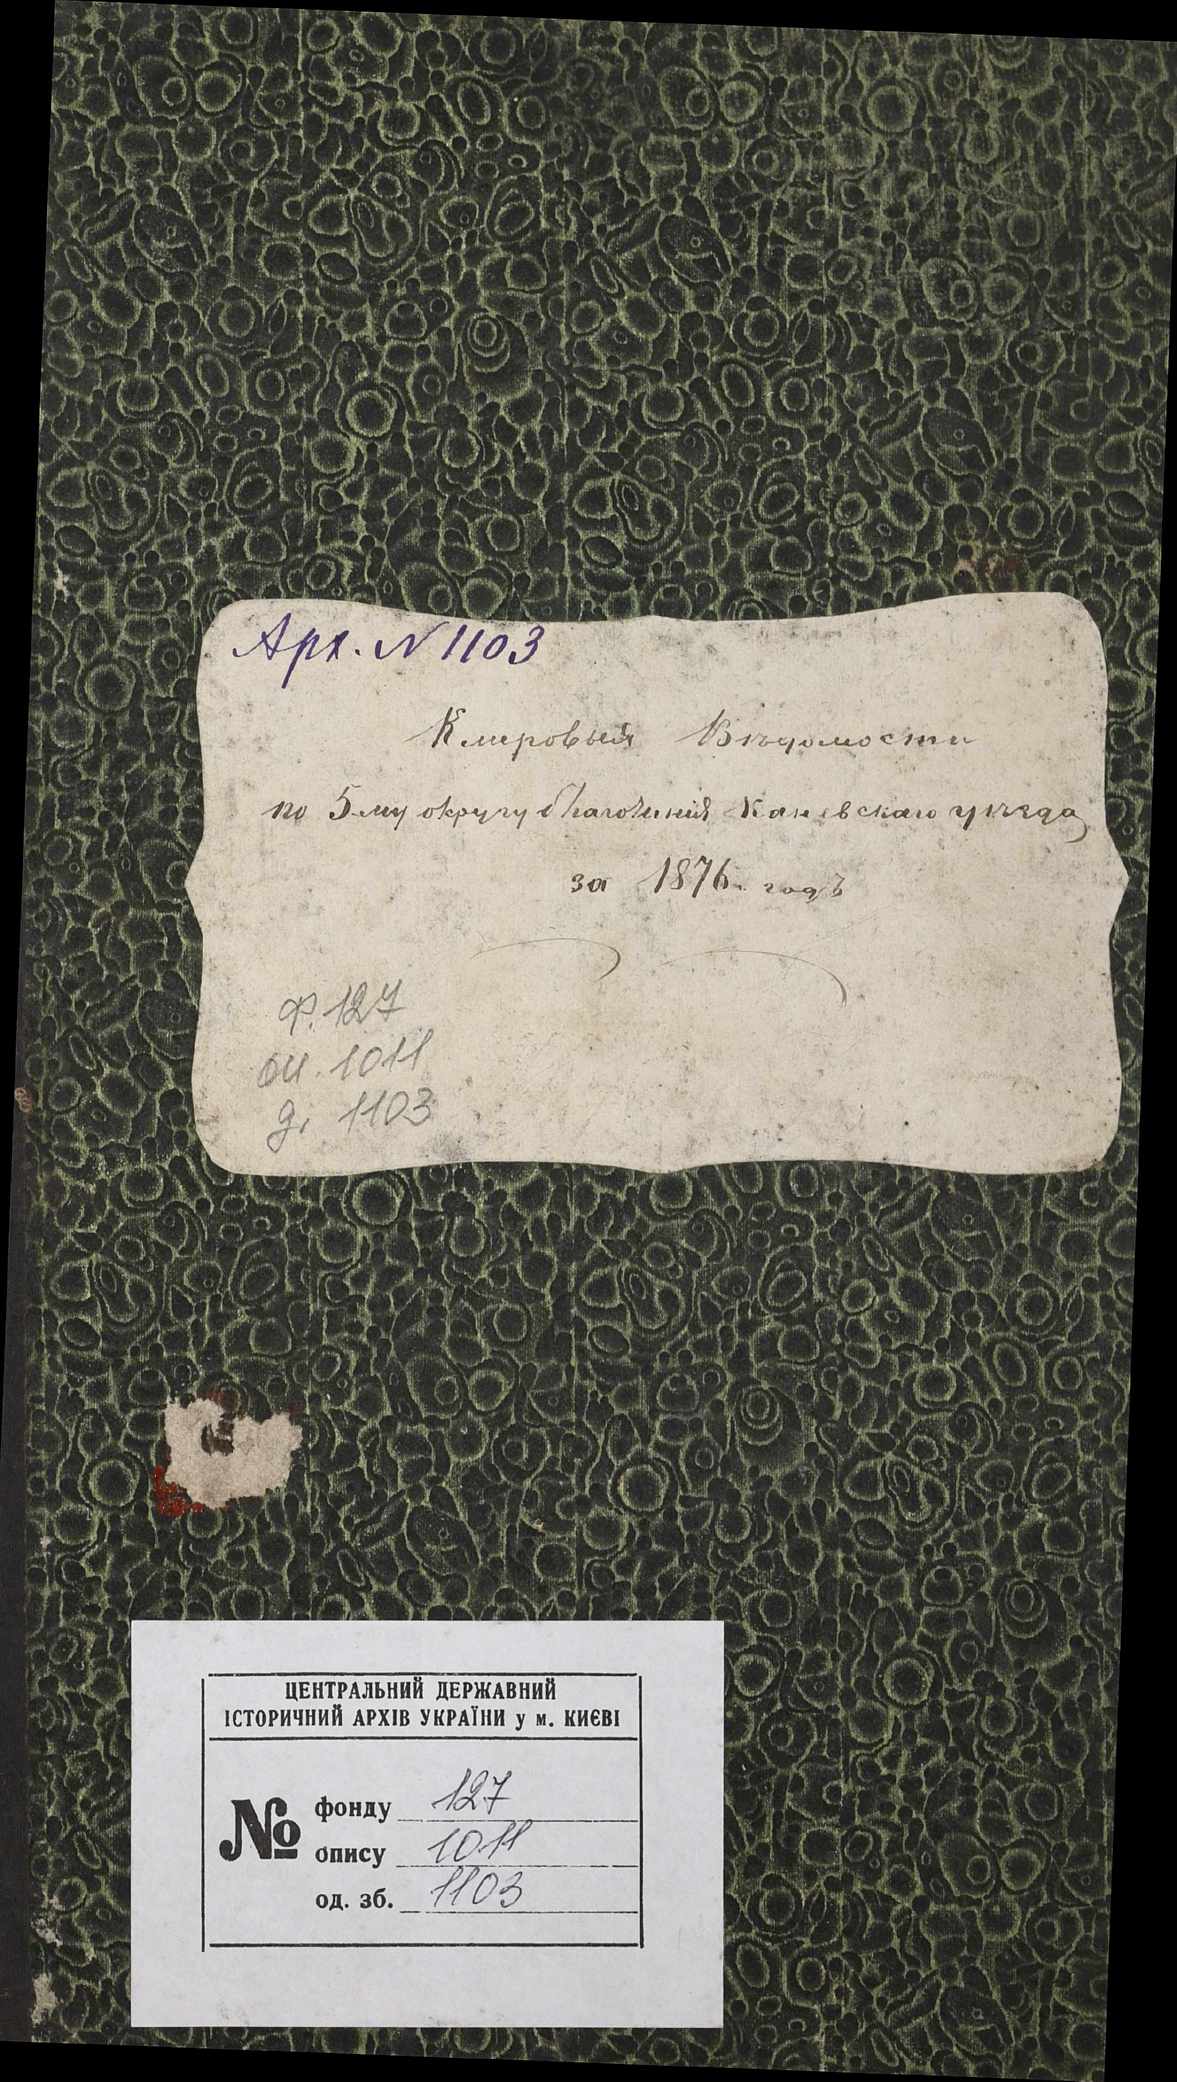 Арх. N 1103
Клировыя Вѣдомости
по 5-му округу благочинія Каневскаго уѣзда
за 1876. годъ
ф. 127
оп. 1011
д. 1103
ЦЕНТРАЛЬНИЙ ДЕРЖАВНИЙ
ІСТОРИЧНИЙ АРХІВ УКРАЇНИ у м. КИЄВІ
№ фонду 127
опису 1011
од. зб. 1103